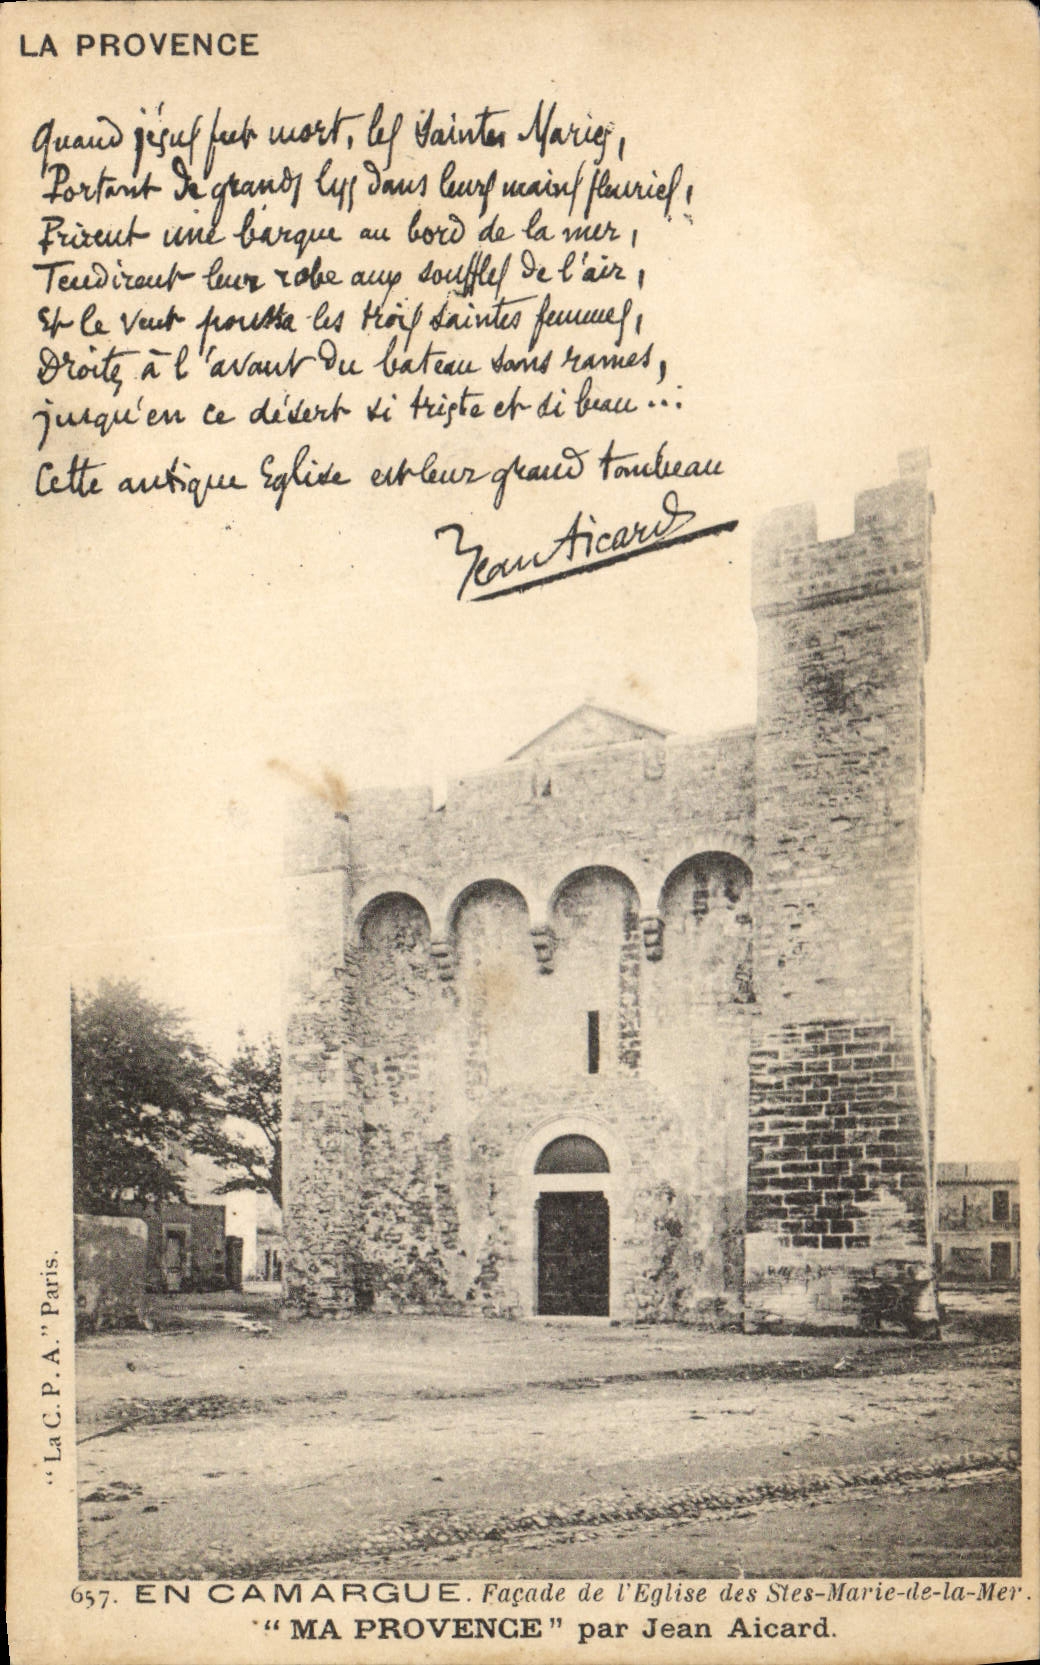 LA PROVENCE
Quand jésus fut mort, les Saintes Maries,
Portant de grands lys dans leurs mains fleuries,
Prirent une barque au bord de la mer,
Tendirent leur robe aux souffles de l'air,
Et le vent poussa les trois saintes femmes,
Droites, à l'avant du bateau sans rames,
jusqu'en ce désert si triste et si beau...
Cette antique Eglise est leur grand tombeau
Jean Aicard
"La C. P. A." Paris.
657. EN CAMARGUE. Façade de l'Eglise des Stes-Marie-de-la-Mer.
"MA PROVENCE" par Jean Aicard.